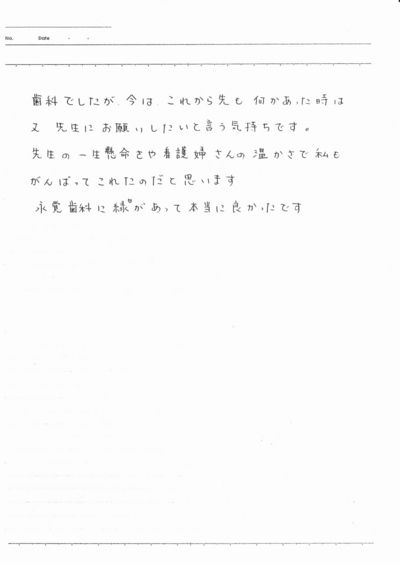 No.　Date　・　・
歯科でしたが、今は、これから先も 何かあった時は
又 先生にお願いしたいと言う気持ちです。
先生の一生懸命さや看護婦さんの温かさで私も
がんばってこれたのだと思います
永覚歯科に縁があって本当に良かったです